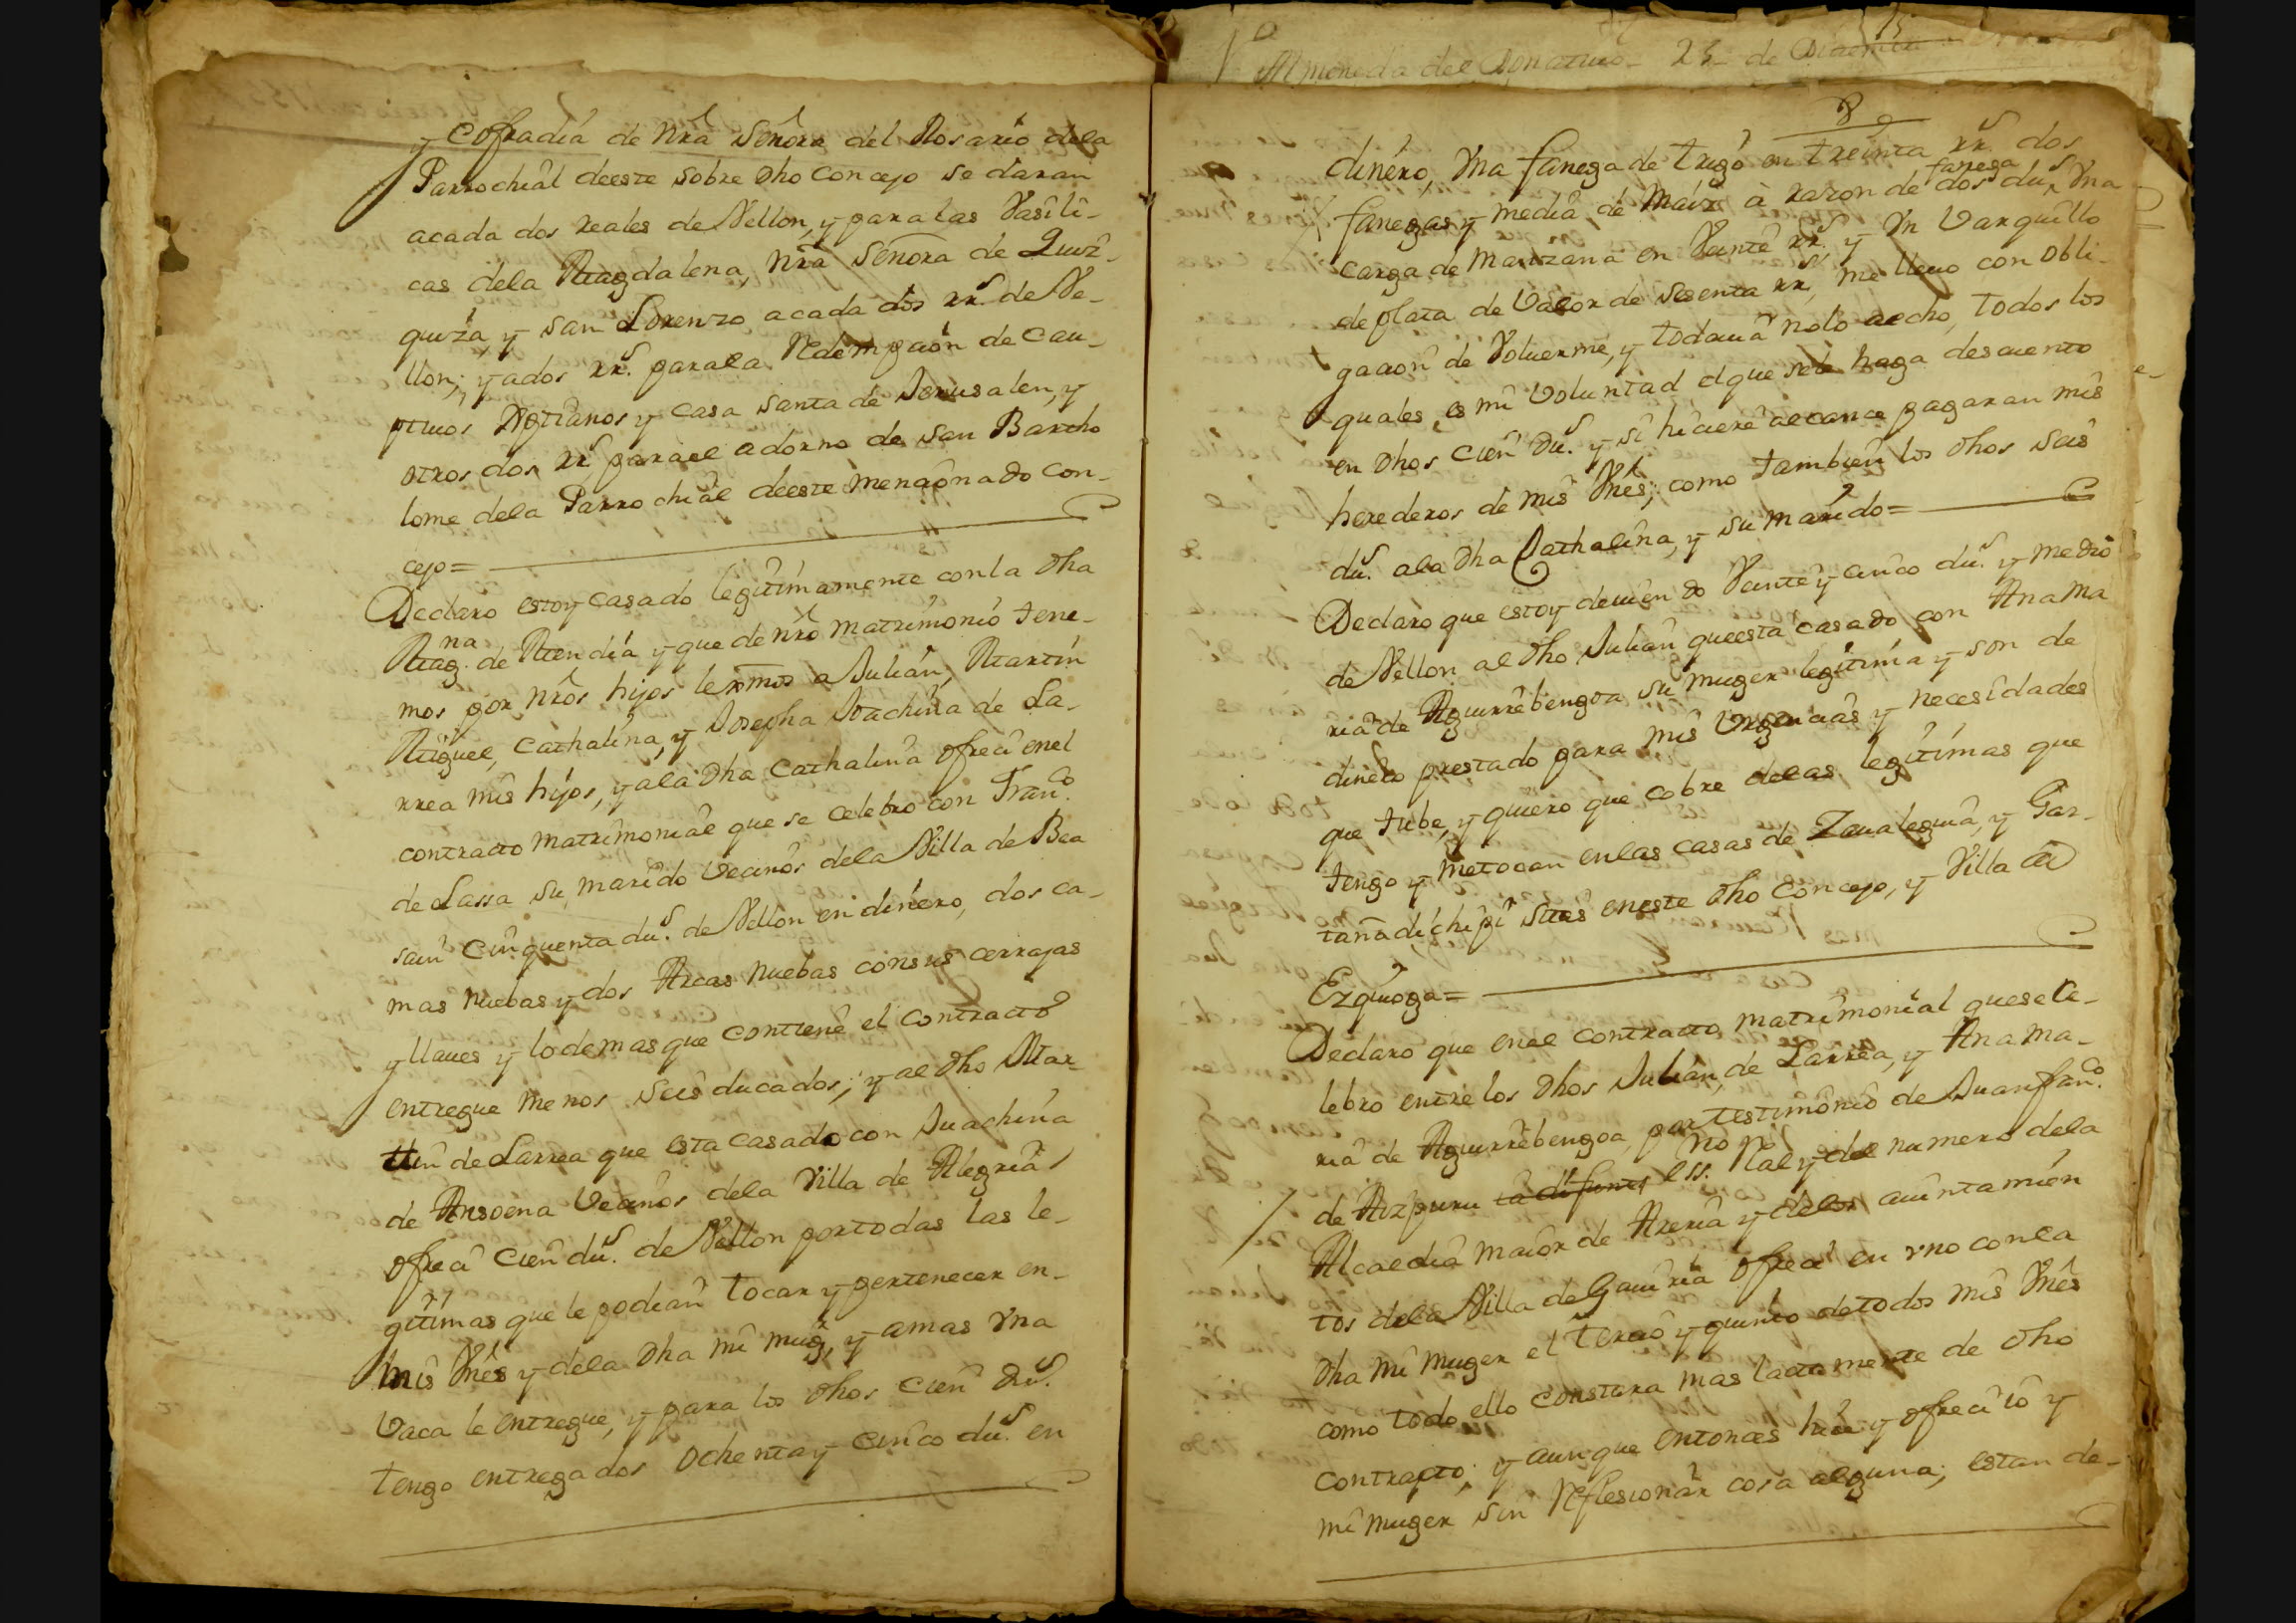 y Cofradia de nrâ Señora del Rosario dela
Parrochial deeste sobre dho concejo se daran
acada dos reales de Vellon, y para las Vasili-
cas dela Magdalena, nrâ Señora de Quiz-
quiza, y San Lorenzo acada dos rrs. de Ve-
llon; y ados rrs. parala Redempcion de Cau-
ptiuos Xptianos y casa santa de Jerusalen, y
otros dos rrs para el adorno de San Bartho
lome dela Parrochial deeste mencionado con-
cejo=
Declaro estoy casado legitimamente con la dha
Magna. de Mendia y que de nrô matrimonio tene-
mos por nrôs hijos lexmos a Julian, Martin
Miguel, Cathalina, y Josepha Joachina de La-
rrea mis hijos, y ala dha Cathalina ofreci enel
contracto matrimonial que se celebro con Franco.
de Lassa su marido Vecinos dela Villa de Bea
sain cinquenta dus. de Vellon en dinero, dos ca-
mas nuebas y dos Arcas nuebas con sus cerrajas
y llaues y lo demas que contiene el contracto
entregue menos seis ducados; y al dho Mar-
tin de Larrea que esta casado con Juachina
de Ansoena Vecinos dela Villa de Alegria
ofreci cien dus. de Vellon por todas las le-
gitimas que le podian tocar y pertenecer en-
mis Vnês y dela dha mi mugr, y amas vna
Vaca le entregue, y para los dhos cien dus.
tengo entregados ochenta y cinco dus. en
Almoneda del Donatiuo 23 de Diciembre
8
dinero, Vna fanega de trigo en treinta rrs. dos
fanega
fanegas y media de Maiz à razon de dos dus, Vna
carga de Manzana en Veinte rrs. y Vn Varquillo
de plata de Valor de sesenta rrs, me lleuo con obli-
gacion de Voluerme, y todauia nolo aecho, todos los
quales es mi Voluntad elque sele haga descuento
en dhos cien dus. y si hiciere alcance pagaran mis
herederos de mis Vnês; como tambien los dhos seis
dus. ala dha Cathalina, y su marido=
Declaro que estoy deuiendo Veinte y cinco dus. y medio
de Vellon al dho Julian queesta casado con Ana Ma
ria de Aguirrebengoa su muger legitima y son de
dinero prestado para mis Vrgencias y necesidades
que tube, y quiero que cobre delas legitimas que
tengo y metocan enlas casas de Zaualegui, y Gar-
tañadichipi sitas eneste dho Concejo, y Villa de
Ezquioga=
Declaro que enel contracto matrimonial quesece-
lebro entre los dhos Julian de Larrea, y Ana Ma-
ria de Aguirrebengoa, por testimonio de Juan franco.
de Aizpuru ess.no Rl. y del numero dela
Alcaldia maior de Areria y delos aiuntamien
tos dela Villa de Gauiria ofreci en vno conla
dha mi muger el tercio y quinto detodos mis Vnês
como todo ello constara mas lactamente de dho
contracto; y aunque entonces hice y ofreci io y
mi muger sin Reflesionar cosa alguna; estan de-